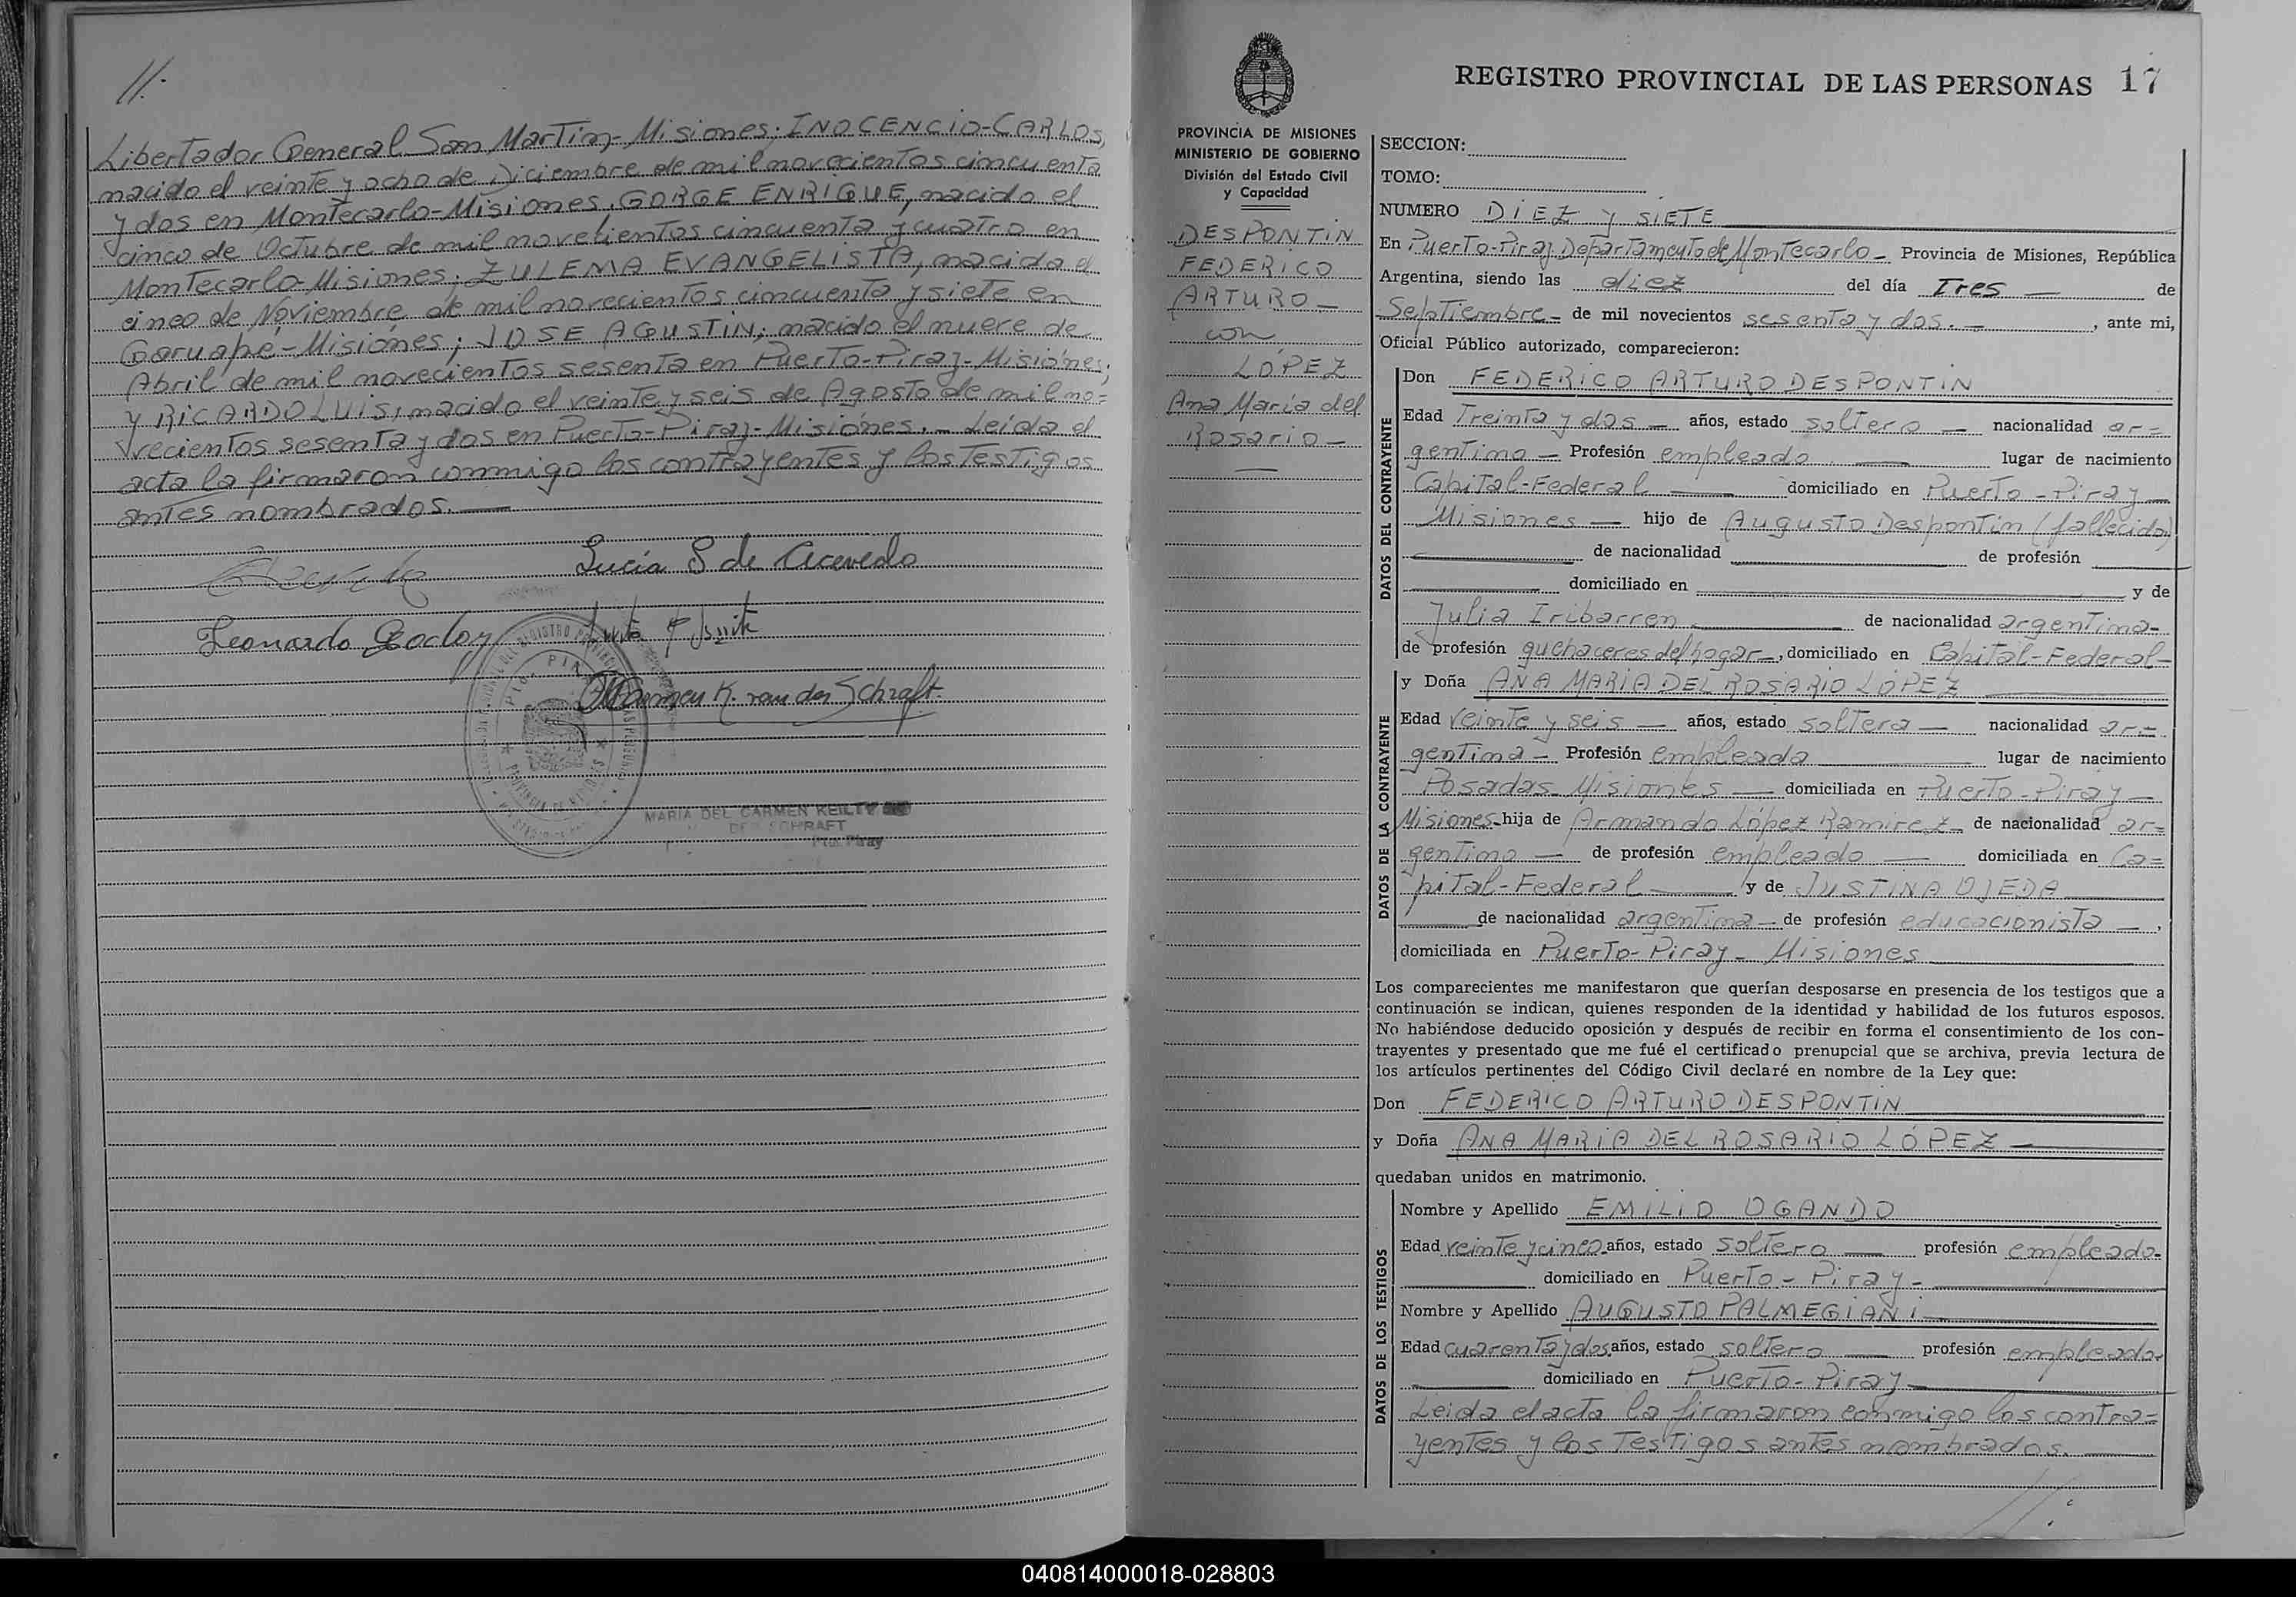 //.
Libertador General San Martin-Misiones; INOCENCIO-CARLOS,
nacido el veinte y ocho de Diciembre de mil novecientos cincuenta
y dos en Montecarlo-Misiones. GORGE ENRIQUE, nacido el
cinco de Octubre de mil novecientos cincuenta y cuatro en
Montecarlo-Misiones; ZULEMA EVANGELISTA, nacida el
cinco de Noviembre de mil novecientos cincuenta y siete en
Garuapé-Misiones; JOSE AGUSTIN; nacido el nueve de
Abril de mil novecientos sesenta en Puerto-Piray-Misiones;
y RICARDO LUIS, nacido el veinte y seis de Agosto de mil no=
vecientos sesenta y dos en Puerto-Piray-Misiones. - Leída el
acta la firmaron conmigo los contrayentes y los testigos
antes nombrados. —
Lucia S de Acevedo
Leonardo Godoy
K. van der Schraft
MARIA DEL CARMEN KEILTY
DER SCHRAFT
Piray
REGISTRO PROVINCIAL DE LAS PERSONAS 17
PROVINCIA DE MISIONES
MINISTERIO DE GOBIERNO
División del Estado Civil
y Capacidad
DESPONTIN
FEDERICO
ARTURO —
con
LÓPEZ
Ana María del
Rosario —
SECCION:
TOMO:
NUMERO DIEZ y SIETE
En Puerto-Piray Departamento de Montecarlo - Provincia de Misiones, República
Argentina, siendo las diez del día Tres — de
Septiembre - de mil novecientos sesenta y dos. - , ante mi,
Oficial Público autorizado, comparecieron:
DATOS DEL CONTRAYENTE
Don FEDERICO ARTURO DESPONTIN
Edad Treinta y dos — años, estado soltero — nacionalidad ar=
gentino — Profesión empleado — lugar de nacimiento
Capital-Federal — domiciliado en Puerto-Piray —
Misiones — hijo de Augusto Despontin (fallecido)
— de nacionalidad — de profesión —
— domiciliado en — y de
Julia Iribarren — de nacionalidad argentina-
de profesión quehaceres del hogar -, domiciliado en Capital-Federal-
DATOS DE LA CONTRAYENTE
y Doña ANA MARIA DEL ROSARIO LÓPEZ —
Edad veinte y seis — años, estado soltera — nacionalidad ar=
gentina — Profesión empleada — lugar de nacimiento
Posadas Misiones — domiciliada en Puerto-Piray —
Misiones - hija de Armando López Ramirez - de nacionalidad ar=
gentino — de profesión empleado — domiciliada en Ca=
pital-Federal — y de JUSTINA OJEDA
— de nacionalidad argentina — de profesión educacionista — ,
domiciliada en Puerto-Piray - Misiones
Los comparecientes me manifestaron que querían desposarse en presencia de los testigos que a
continuación se indican, quienes responden de la identidad y habilidad de los futuros esposos.
No habiéndose deducido oposición y después de recibir en forma el consentimiento de los con-
trayentes y presentado que me fué el certificado prenupcial que se archiva, previa lectura de
los artículos pertinentes del Código Civil declaré en nombre de la Ley que:
Don FEDERICO ARTURO DESPONTIN
y Doña ANA MARIA DEL ROSARIO LÓPEZ —
quedaban unidos en matrimonio.
DATOS DE LOS TESTIGOS
Nombre y Apellido EMILIO OGANDO
Edad veinte y cinco años, estado soltero — profesión empleado-
— domiciliado en Puerto-Piray -
Nombre y Apellido AUGUSTO PALMEGIANI —
Edad cuarenta y dos años, estado soltero — profesión empleado-
— domiciliado en Puerto-Piray —
Leida el acta la firmaron conmigo los contra=
yentes y los testigos antes nombrados. —
//.
040814000018-028803